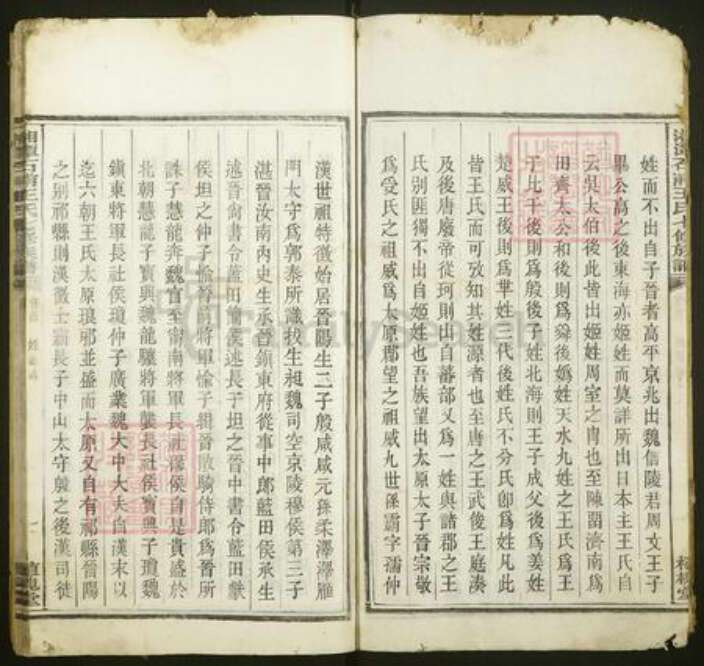 姓而不出自子晉者高平京兆出魏信陵君周文王子
畢公高之後東海亦姬姓而莫詳所出日本主王氏自
云吳太伯後此皆出姬姓周室之冑也至陳留濟南爲
田齊太公和後則爲舜後嬀姓天水九姓之王氏爲王
子比干後則爲殷後子姓北海則王子成父後爲姜姓
楚威王後則爲羋姓三代後姓氏不分氏卽爲姓凡此
皆王氏而可攷知其姓源者也至唐之王武俊王庭湊
後及後唐廢帝從珂則出自蕃部又爲一姓與諸郡之王
氏別匪獨不出自姬姓也吾族望出太原太子晉宗敬
爲受氏之祖威爲太原郡望之祖威九世孫霸字儒仲
漢世祖特徵始居晉陽生二子殷咸咸元孫柔澤澤雁
門太守爲郭泰所識拔生昶魏司空京陵穆侯第三子
湛晉汝南內史生承晉鎮東府從事中郎藍田侯承生
述晉尙書令藍田簡侯述長子坦之晉中書令藍田獻
侯坦之仲子愉晉前將軍愉子緝晉散騎侍郎爲晉所
誅子慧龍奔魏官至甯南將軍長社穆侯自是貴盛於
北朝慧龍子寶興魏龍驤將軍襲長社侯寶興子瓊魏
鎮東將軍長社侯瓊仲子廣業魏大中大夫自漢末以
迄六朝王氏太原琅邪並盛而太原又自有祁縣晉陽
之別祁縣則漢徵士霸長子中山太守殷之後漢司徒